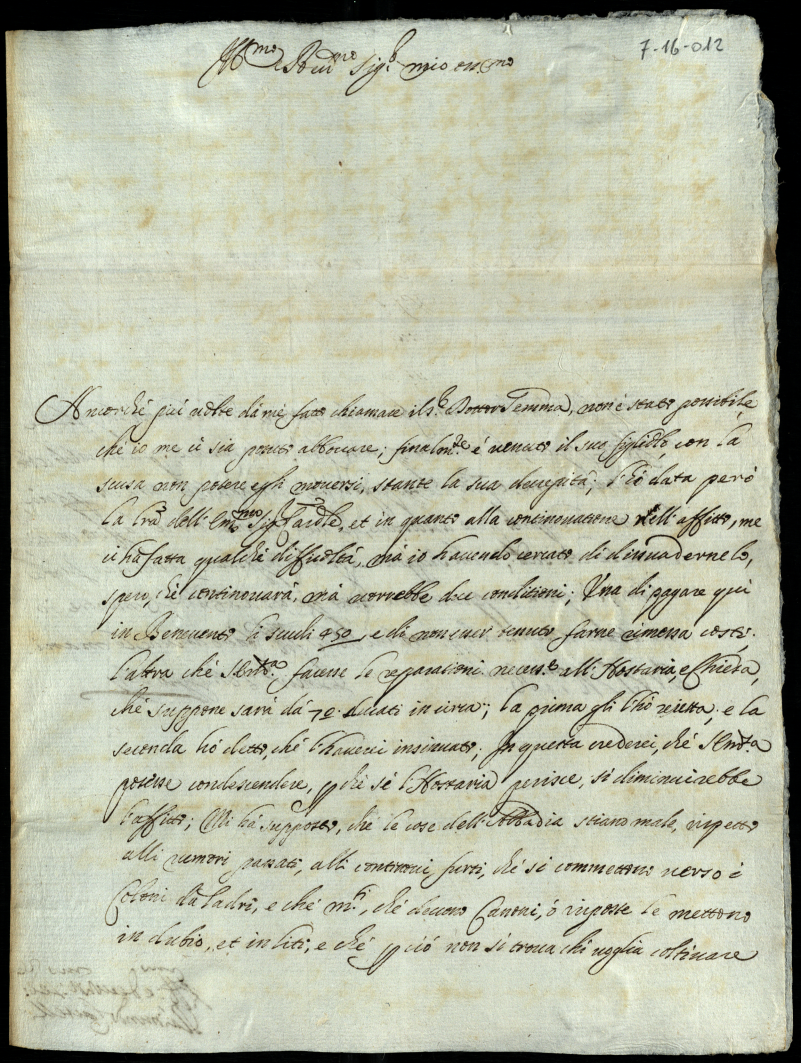 7-16-012
Ill.mo e Rev.mo Sig.r mio oss.mo
Ancorché più volte da me fatto chiamare il S.r Dottor Temma, non é stato possibile,
che io me ci sia potuto abboccare; finalm.te é venuto il suo figliolo, con la
scusa non potere egli moversi, stante la sua decrepità; l'hò data però
la lrã dell' Em.mo Sig.r Card.le, et in quanto alla continovatione dell' affitto, me
ci hà fatta qualche difficoltà, mà io havendo cercato di dissuadernelo,
spero, che continovarà, mà vorrebbe due conditioni; Una di pagare qui
in Benevento li scudi 450, e di non esser tenuto farne rimessa costì.
l'altra che S. Em.za facesse le reparationi necess.e alli Hostaria, e Chiesa,
che suppone sarà da 70 ducati in circa; la prima gli l'hò reietta, e la
seconda hò detto, che l'haverei insinuato; In questa crederei, che S. Em.za
potesse condescendere, perche se l'Hostaria perisce, si diminuirebbe
l'affitto; Mi hà supposto, che le cose dell' Abbadia stiano male, rispetto
alli rumori passati, alli continovi furti, che si commettono verso i
Coloni da ladri, e che m.ti, che devono Canoni, ó risposte le mettono
in dubio, et in liti; e che per ció non si trova chi voglia coltivare